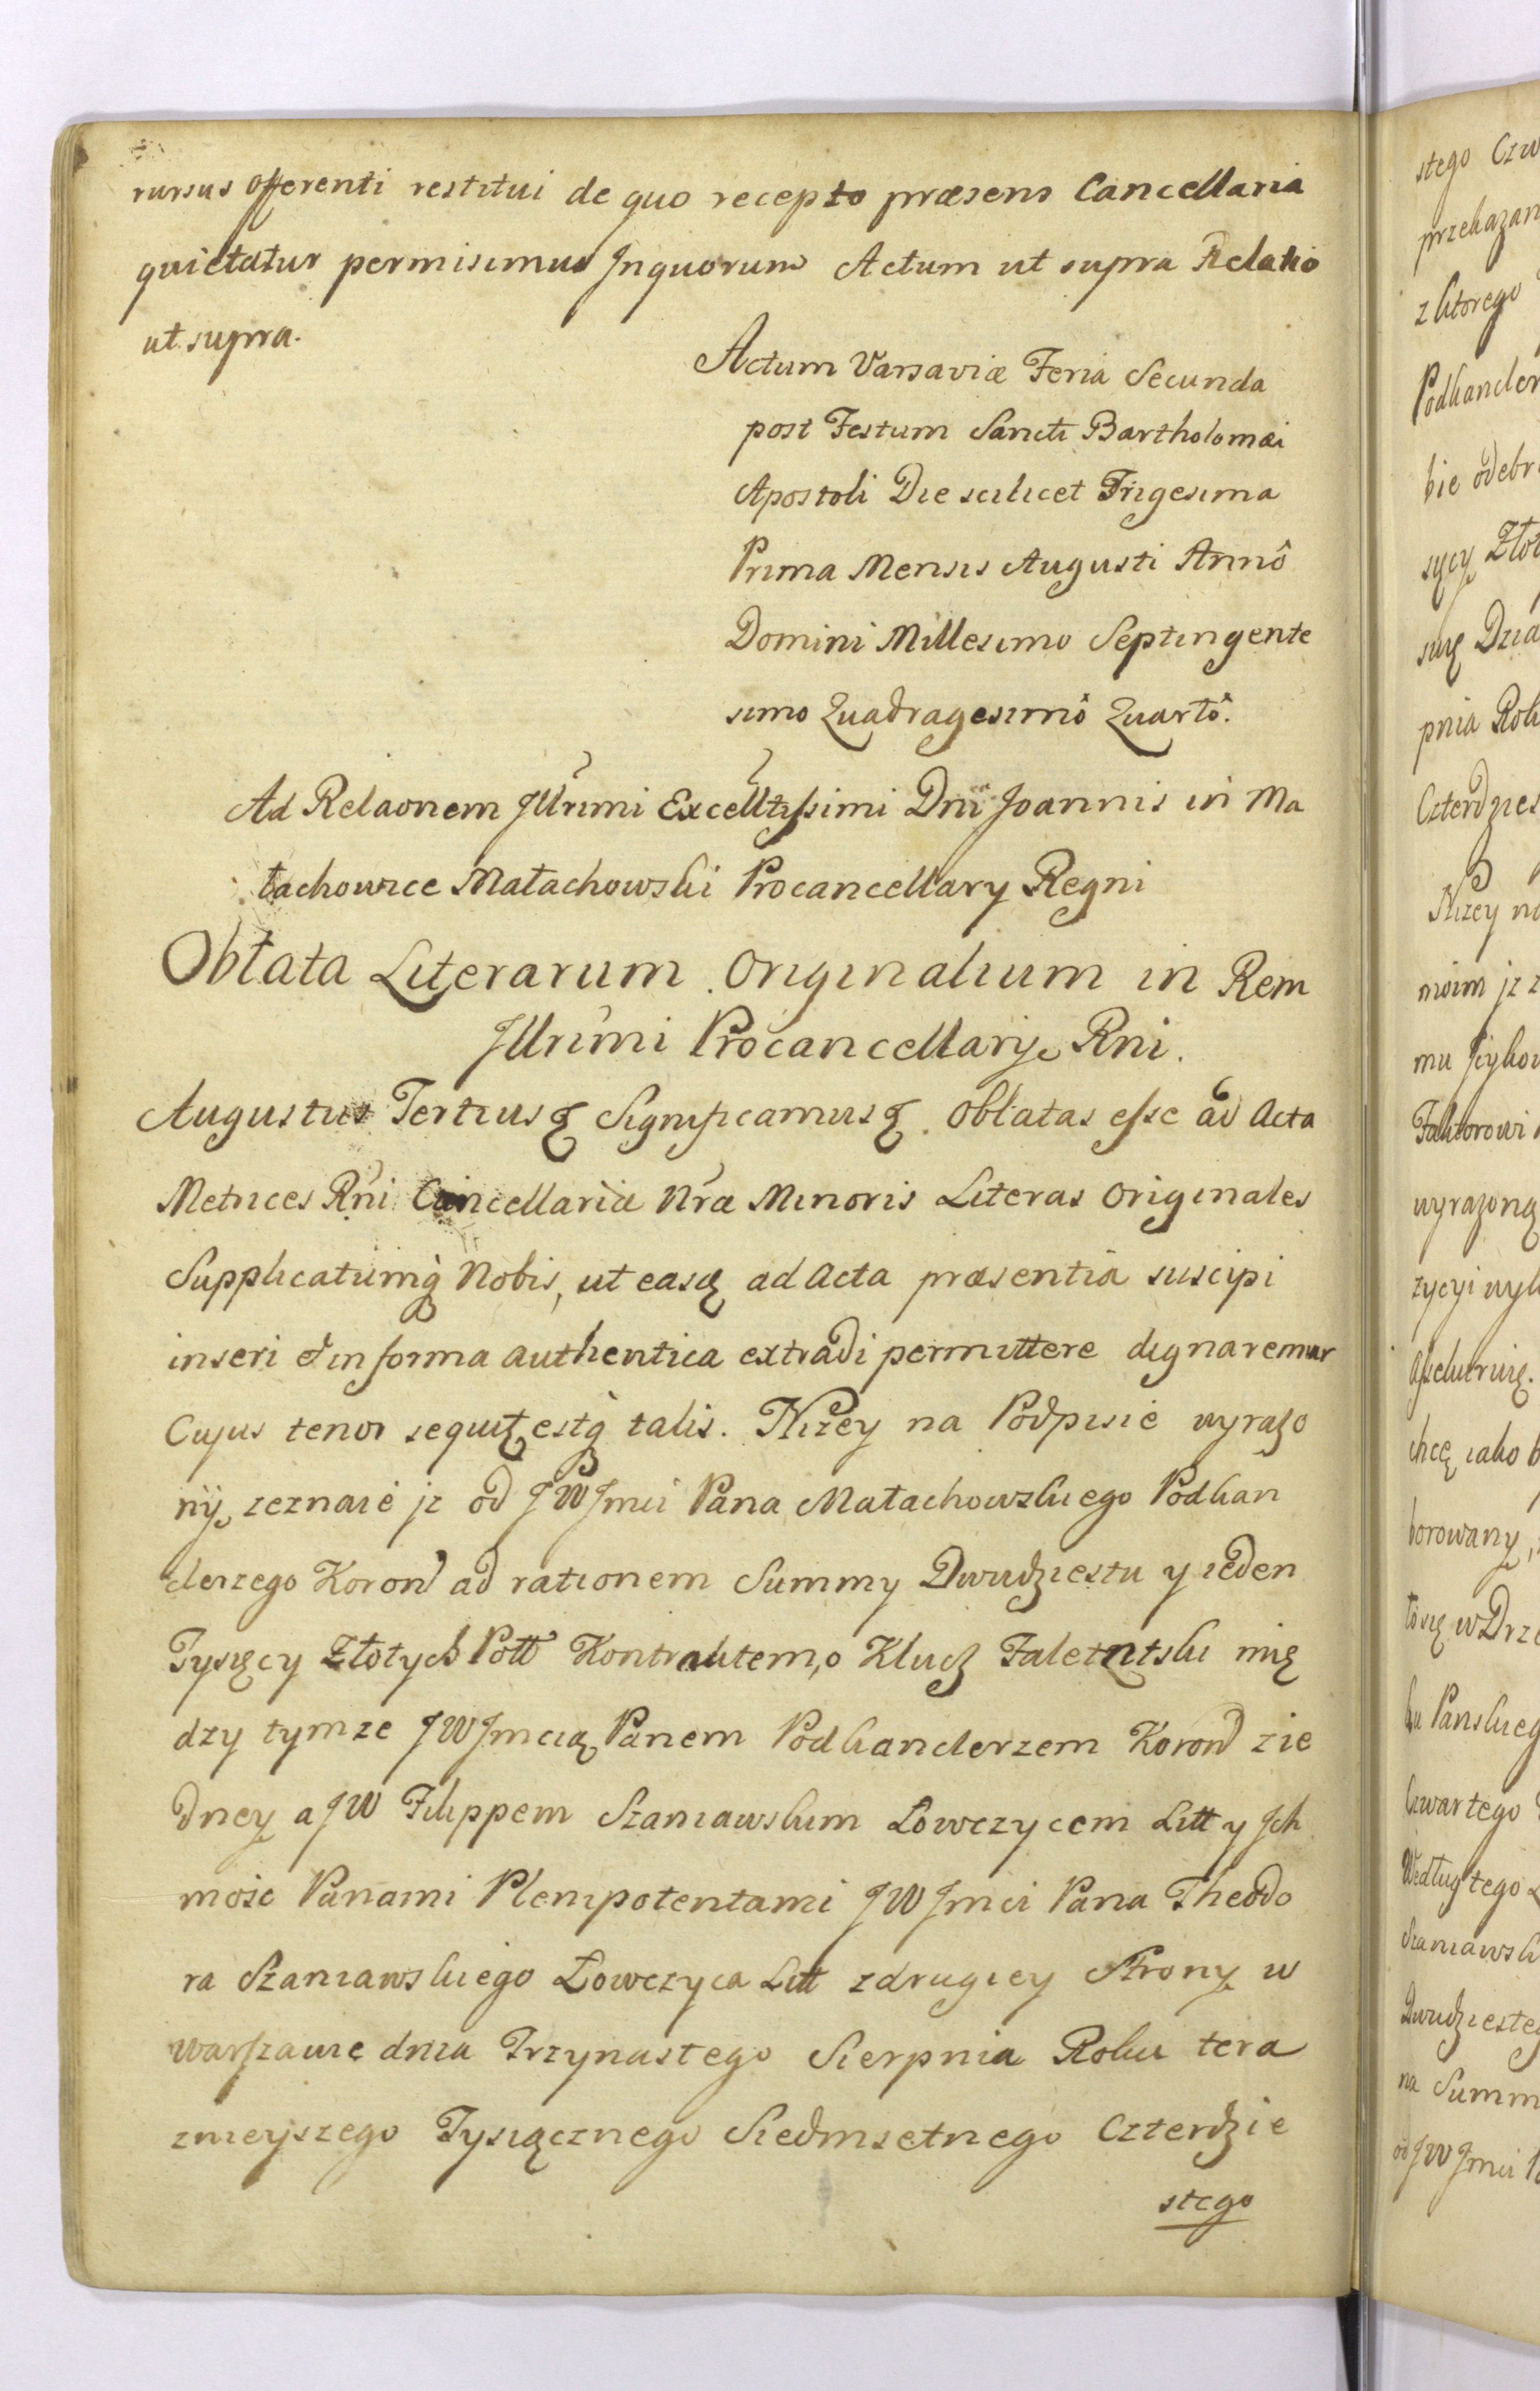 rursus offerenti restitui de quo recepto præsens Cancellaria
quietatur permisimus Jnquorum Actum ut supra Relatio
ut supra.
Actum Varsaviæ Feria Secunda
post Festum Sancti Bartholomæi
Apostoli Die scilicet Trigesima
Prima Mensis Augusti Annô
Domini Millesimo Septingente
simo Quadragesimô Quartô.
Ad Relaonem Jllrimi Excelltissimi Dni Joannis in Ma
łachowice Małachowski Procancellary Regni
Obłata Literarum Originalium in Rem
Jllrimi Procancellarij Rni.
Augustus Tertius Significamus Obłatas esse ad Acta
Metrices Rni Cancellariæ Nræ Minoris Literas Originales
Supplicatumq Nobis, ut easq ad Acta præsentia suscipi
inseri et in forma authentica extradi permittere dignaremur
Cujus tenor sequit estq talis. Niżey na Podpisie wyrazo
nÿ zeznaie jz od JW Jmci Pana Małachowskiego Podkan
clerzego Koron ad rationem Summy Dwudziestu y ieden
Tysięcy Złotych Poll Kontraktem, o Klucz Faletntski mię
dzy tymze JW Jmcią Panem Podkanclerzem Koron z ie
dney a JW Filippem Szaniawskim Łowczycem Litt y Jch
mość Panami Plenipotentami JW Jmci Pana Theodo
ra Szaniawskiego Łowczyca Litt z drugiey Strony w
Warszawie dnia Trzynastego Sierpnia Roku tera
znieyszego Tysiącznego Siedmsetnego Czterdzie
stego
stego
przekazan
z ktorego
Podkancler
bie odebr
sięcy Złot
się Dzia
pnia Rok
Czterdzies
Niżey na
moim jz z
mu
Faktorowi
wyrazoną
zycyi
chcę iako b
borowany,
w Drze
Panskieg
Czwartego
Według tego
Szaniawsk
Dwudziesteg
na Summ
od JW Jmci